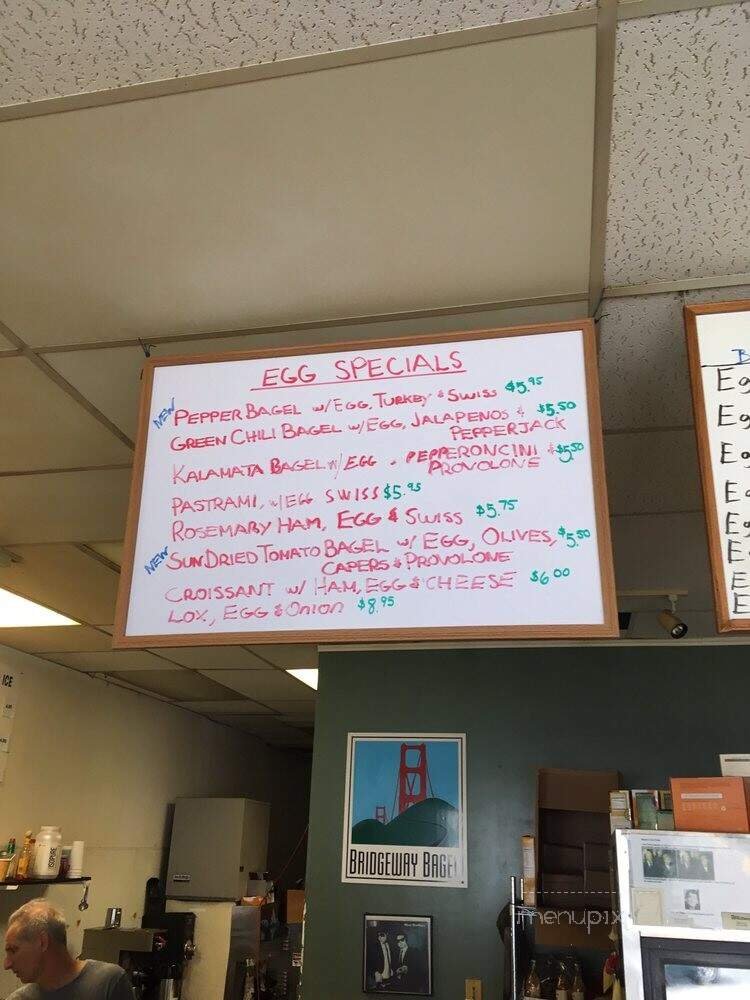 EGG SPECIALS
NEW PEPPER BAGEL w/EGG, TURKEY & SWISS $5.95
GREEN CHILI BAGEL w/EGG, JALAPENOS & $5.50
PEPPERJACK
KALAMATA BAGEL w/EGG - PEPPERONCINI & $5.50
PROVOLONE
PASTRAMI, w/EGG SWISS $5.95
ROSEMARY HAM, EGG & SWISS $5.75
NEW SUN DRIED TOMATO BAGEL w/ EGG, OLIVES, $5.50
CAPERS & PROVOLONE
CROISSANT w/ HAM, EGG & CHEESE $6.00
LOX, EGG & ONION $8.95
ICE
BRIDGEWAY BAGEL
ISOPURE
menupix